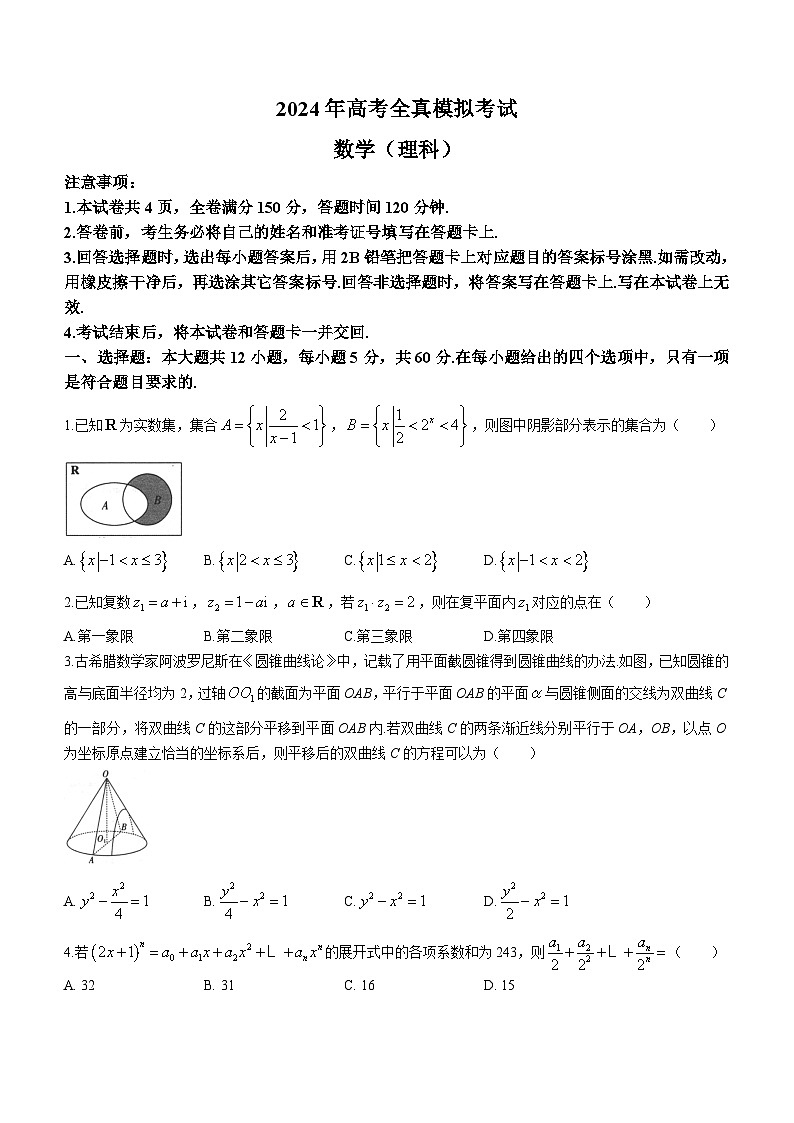 2024年高考全真模拟考试
数学（理科）
注意事项：
1.本试卷共4页，全卷满分150分，答题时间120分钟.
2.答卷前，考生务必将自己的姓名和准考证号填写在答题卡上.
3.回答选择题时，选出每小题答案后，用2B铅笔把答题卡上对应题目的答案标号涂黑.如需改动，
用橡皮擦干净后，再选涂其它答案标号.回答非选择题时，将答案写在答题卡上.写在本试卷上无
效.
4.考试结束后，将本试卷和答题卡一并交回.
一、选择题：本大题共12小题，每小题5分，共60分.在每小题给出的四个选项中，只有一项
是符合题目要求的.
1.已知R为实数集，集合A={x|2/(x−1)<1}，B={x|1/2<2^x<4}，则图中阴影部分表示的集合为（　　）
R
A B
A.{x|−1<x≤3} B.{x|2<x≤3} C.{x|1≤x<2} D.{x|−1<x<2}
2.已知复数z₁=a+i，z₂=1−ai，a∈R，若z₁·z₂=2，则在复平面内z₁对应的点在（　　）
A.第一象限 B.第二象限 C.第三象限 D.第四象限
3.古希腊数学家阿波罗尼斯在《圆锥曲线论》中，记载了用平面截圆锥得到圆锥曲线的办法.如图，已知圆锥的
高与底面半径均为2，过轴OO₁的截面为平面OAB，平行于平面OAB的平面α与圆锥侧面的交线为双曲线C
的一部分，将双曲线C的这部分平移到平面OAB内.若双曲线C的两条渐近线分别平行于OA，OB，以点O
为坐标原点建立恰当的坐标系后，则平移后的双曲线C的方程可以为（　　）
O
B
O₁
A
A.y²−x²/4=1 B.y²/4−x²=1 C.y²−x²=1 D.y²/2−x²=1
4.若(2x+1)^n=a₀+a₁x+a₂x²+L +aₙx^n的展开式中的各项系数和为243，则a₁/2+a₂/2²+L +aₙ/2^n=（　　）
A. 32 B. 31 C. 16 D. 15